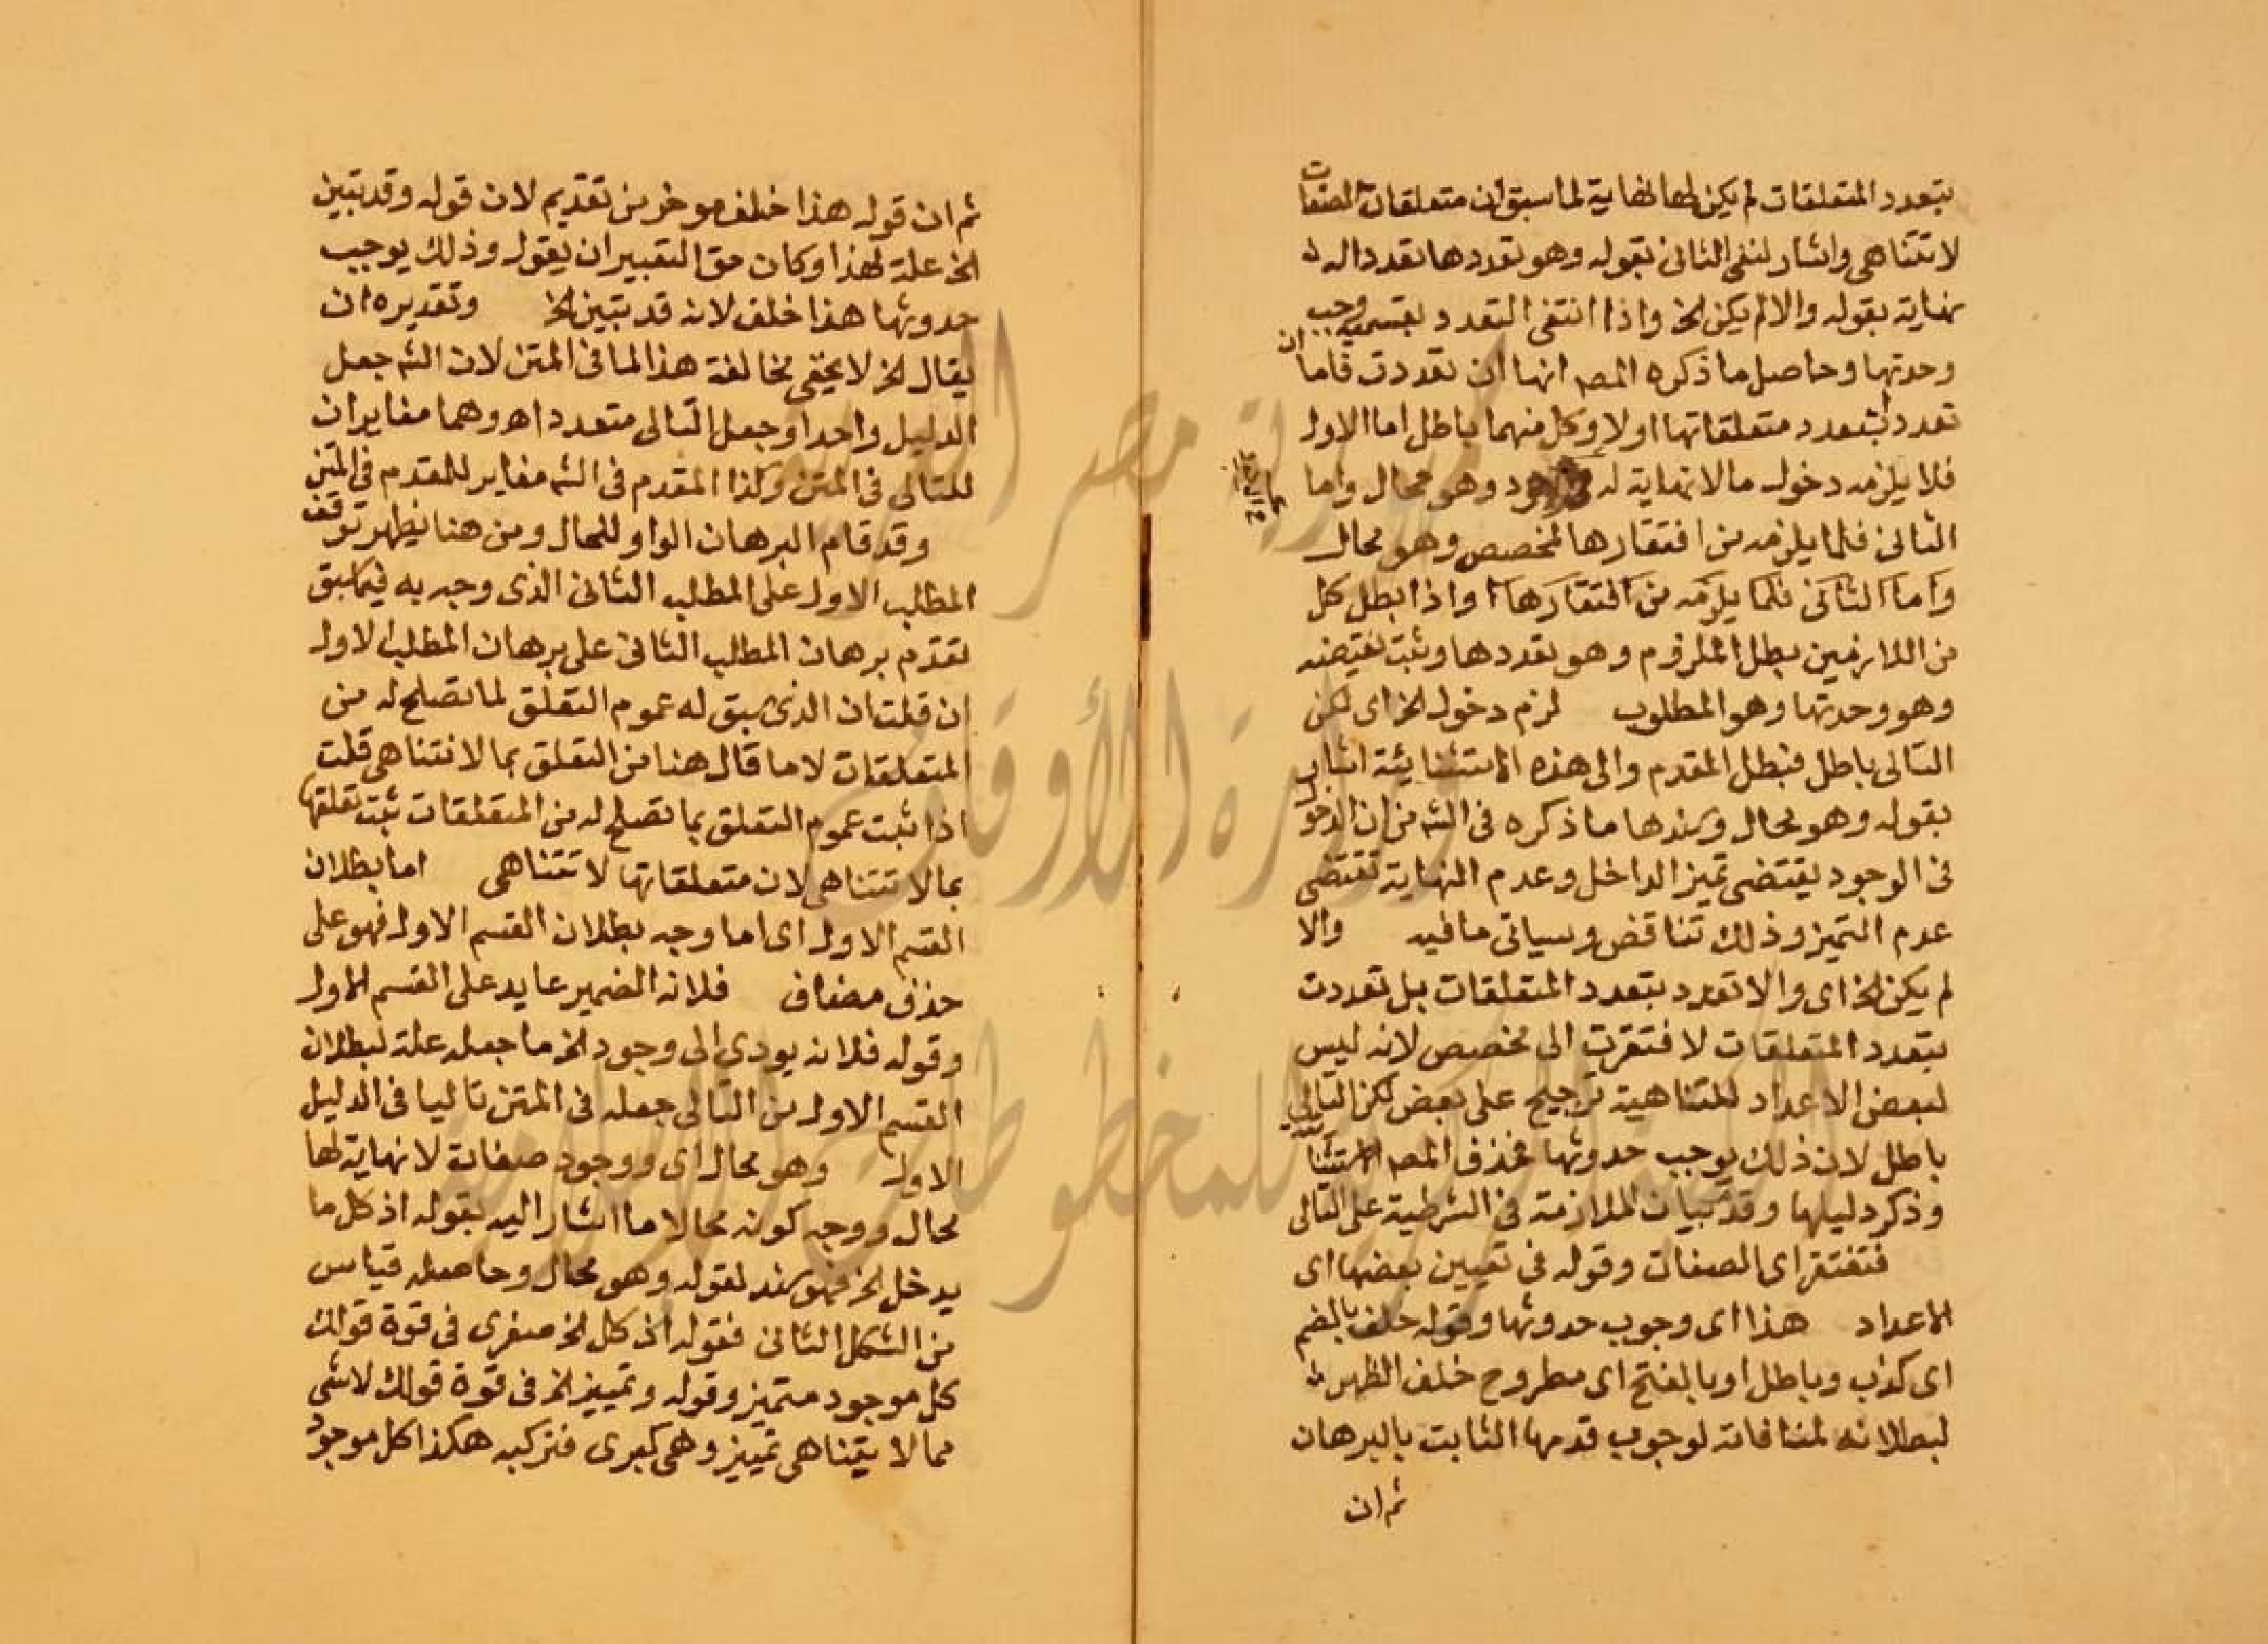 بتعدد المتعلقات لم يكن لها نهاية لما سبق ان متعلقات الصفات
لا تتناهى واشار لنفى الثانى بقوله وهو تعددها تعددا له
نهاية بقوله والا لم يكن الخ واذا انتفى التعدد بقسميه وجب
وحدتها وحاصل ما ذكره المصـ انها ان تعددت فاما ان
تعدد بتعدد متعلقاتها اولا وكل منهما باطل اما الاول
فلا يلزمه دخول مالا نهاية له وهو محال واما
الثانى فلما يلزمه من افتقارها لمخصص وهو محال
واما الثانى فلما يلزمه من افتقارها واذا بطل كل
من اللازمين بطل الملزوم وهو تعددها وثبت نقيضه
وهو وحدتها وهو المطلوب لزم دخول الخ اى لكن
التالى باطل فبطل المقدم والى هذه الاستثنائية اشار
بقوله وهو محال وسندها ما ذكره فى الشـ من ان الدخو
فى الوجود يقتضى تميز الداخل وعدم النهاية تقتضى
عدم التميز وذلك تناقض وسياتى ما فيه والا
لم يكن الخ اى والا تعدد بتعدد المتعلقات بل تعددت
بتعدد المتعلقات لافتقرت الى مخصص لانه ليس
لبعض الاعداد المتناهية ترجيح على بعض لكن التالى
باطل لان ذلك يوجب حدوثها فحذف المصـ الاستثنا
وذكر دليلها وقدم بيان الملازمة فى الشرطية على التالى
فتفتقر اى الصفات وقوله فى تعيين بعضها اى
الاعداد هذا اى وجوب حدوثها وقوله خلف بالضم
اى كذب وباطل او بالفتح اى مطروح خلف الظهر
لبطلانه لمنافاته لوجوب قدمها الثابت بالبرهان
ثم ان
ثم ان قوله هذا خلف موخر من تقديم لان قوله وقد تبين
الخ علة لهذا وكان حق التعبير ان يقول وذلك يوجب
حدوثها هذا خلف لانه قد تبين الخ وتقديره ان
يقال الخ لا يخفى مخالفة هذا لما فى المتن لان الشـ جعل
الدليل واحدا وجعل التالى متعددا اهـ وهما مغايران
للتالى فى المتن وكذا المقدم فى الشـ مغاير للمقدم فى المتن
وقد قام البرهان الواو للحال ومن هنا يظهر توقف
المطلب الاول على المطلب الثانى الذى وجه به فيما سبق
تقدم برهان المطلب الثانى على برهان المطلب الاول
ان قلت ان الذى سبق له عموم التعلق لما تصلح له من
المتعلقات لا ما قال هنا من التعلق بما لا تتناهى قلت
اذا ثبت عموم التعلق بما تصلح له من المتعلقات ثبت تعلقها
بما لا تتناهى لان متعلقاتها لا تتناهى اما بطلان
القسم الاول اى اما وجه بطلان القسم الاول فهو على
حذف مضاف فلانه الضمير عايد على القسم الاول
وقوله فلانه يودى الى وجود الخ ما جعله علة لبطلان
القسم الاول من التالى جعله فى المتن تاليا فى الدليل
الاول وهو محال اى ووجود صفات لا نهاية لها
محال ووجه كونه محالا ما اشار اليه بقوله اذ كل ما
يدخل الخ فهو سند لقوله وهو محال وحاصله قياس
من الشكل الثانى فقوله اذ كل الخ صغرى فى قوة قولك
كل موجود متميز وقوله وتمييز الخ فى قوة قولك لا شى
مما لا يتناهى تمييز وهى كبرى فتركيبه هكذا كل موجود